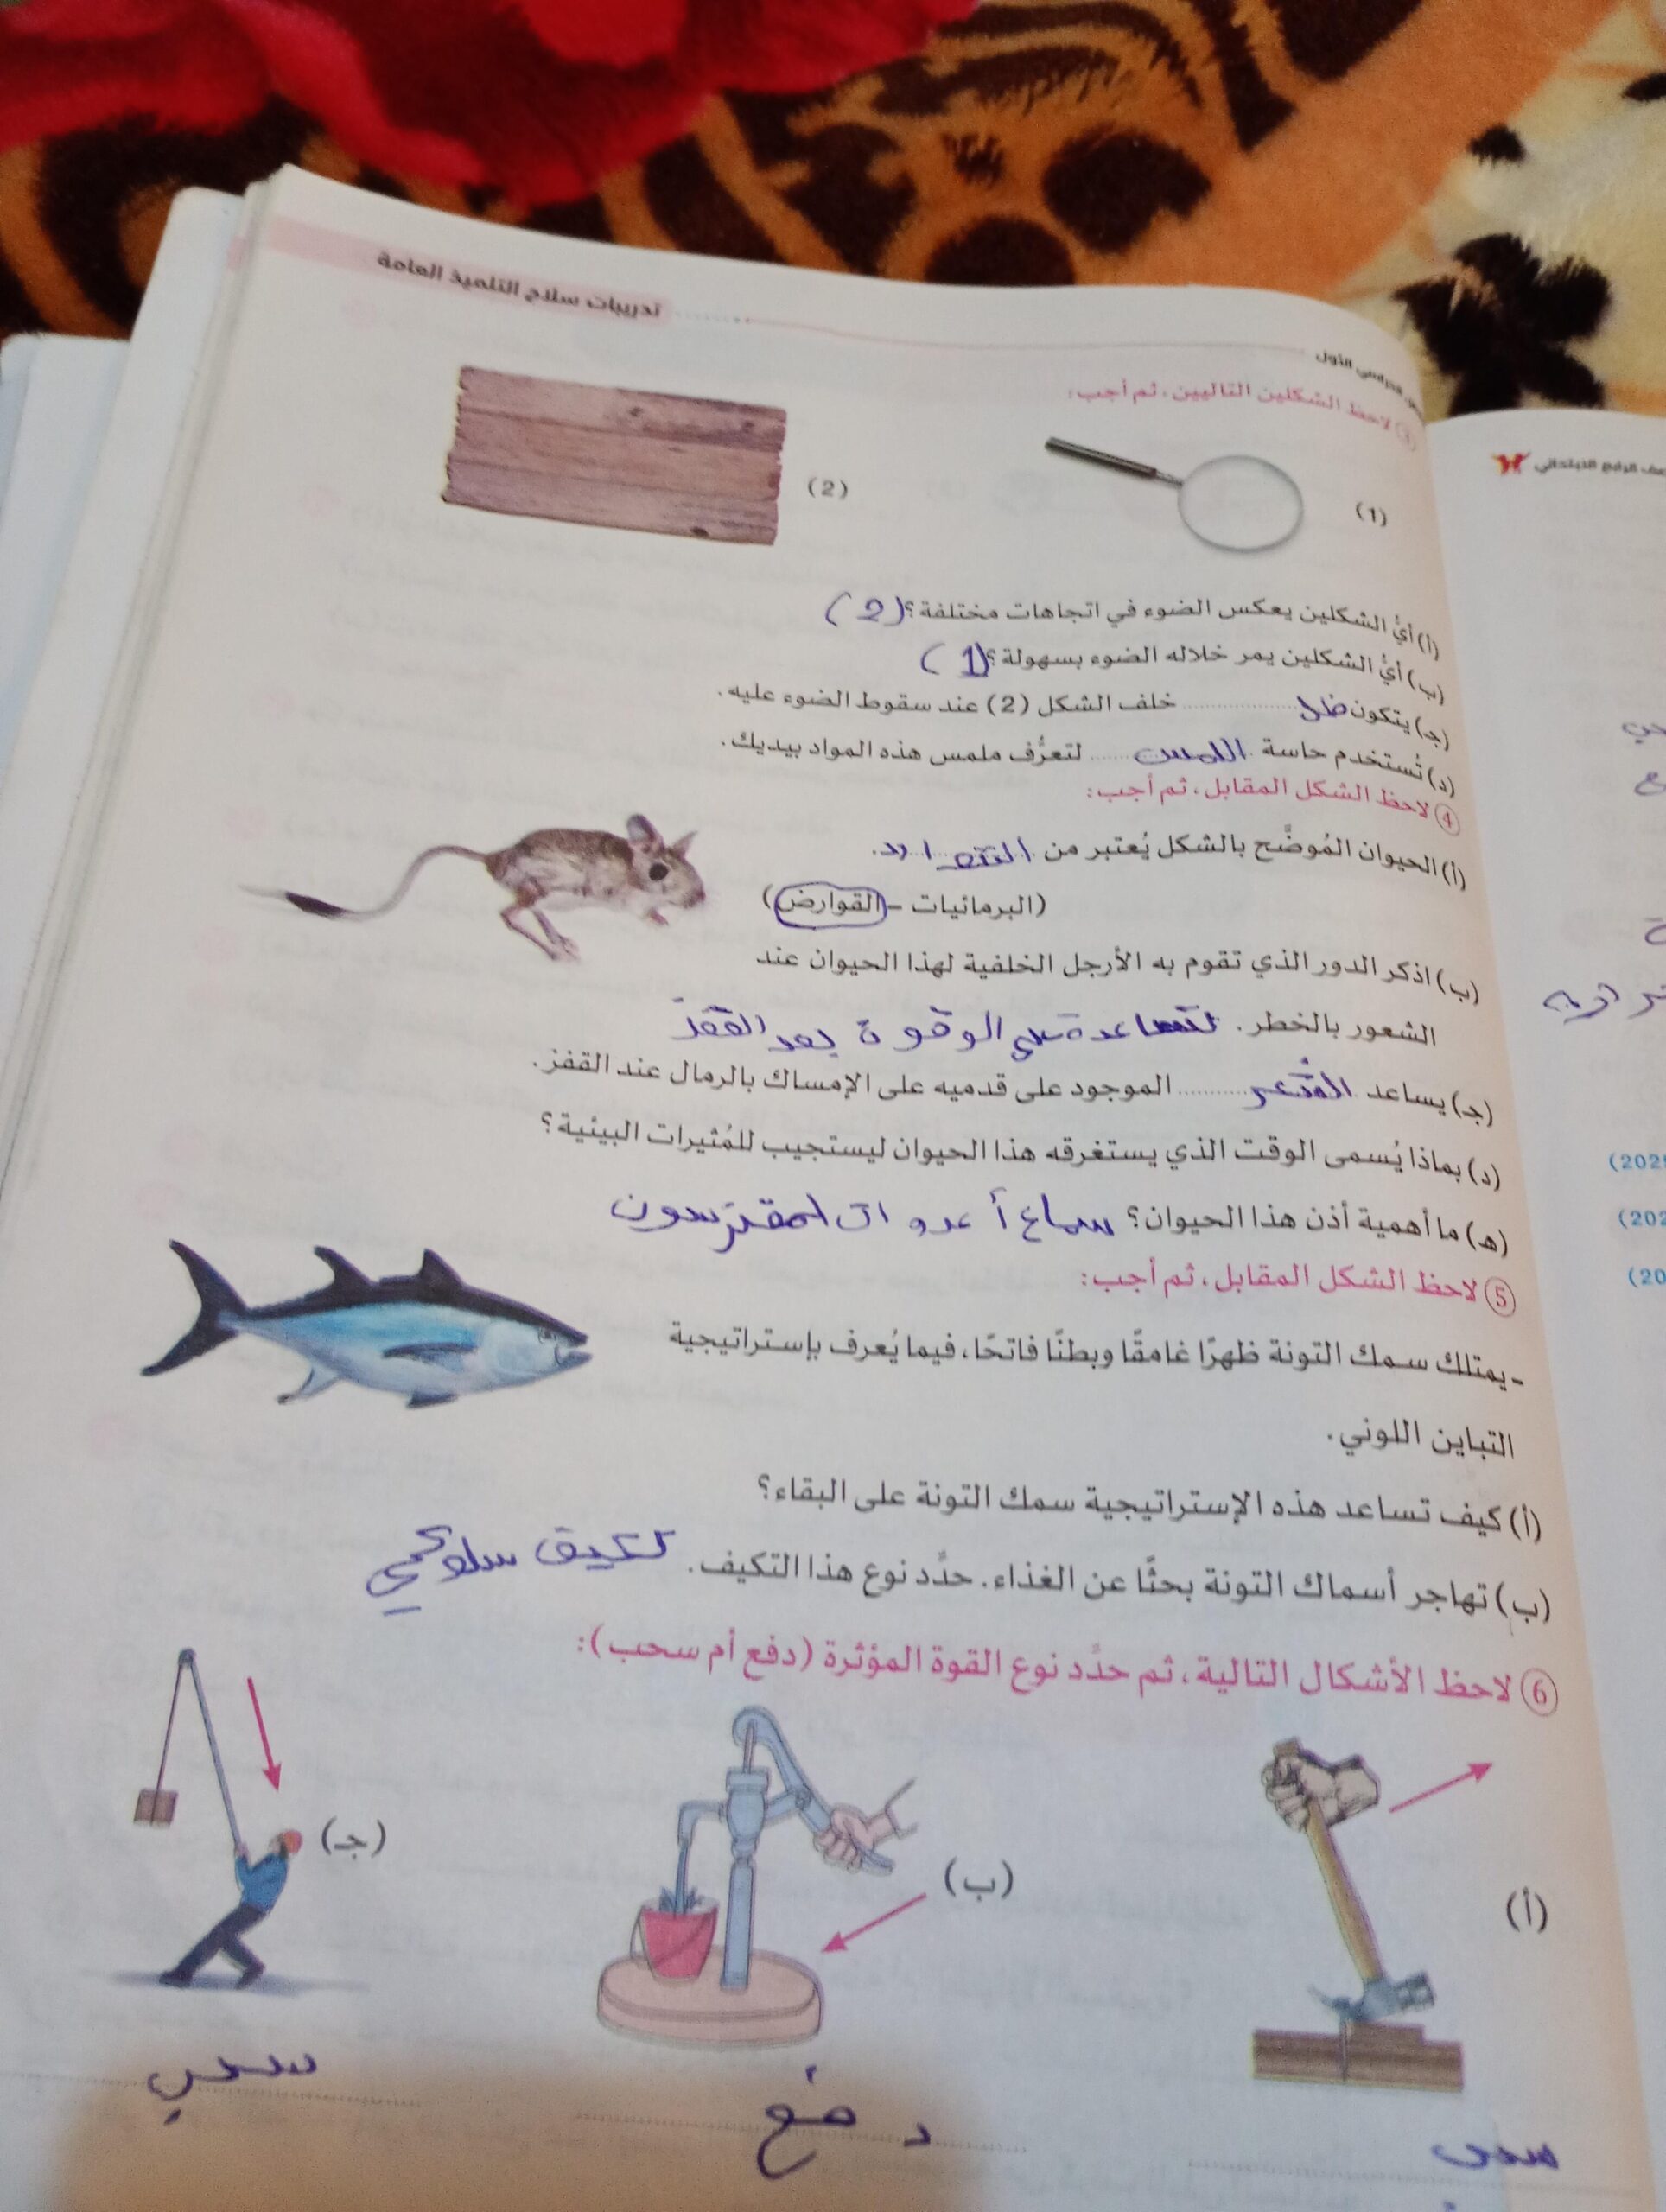 تدريبات سلاح التلميذ العامة
الدراسي الأول
③ لاحظ الشكلين التاليين، ثم أجب:
(1)
(2)
(أ) أيُّ الشكلين يعكس الضوء في اتجاهات مختلفة؟ (2)
(ب) أيُّ الشكلين يمر خلاله الضوء بسهولة؟ (1)
(جـ) يتكون ظل خلف الشكل (2) عند سقوط الضوء عليه.
(د) تُستخدم حاسة اللمس لتعرُّف ملمس هذه المواد بيديك.
④ لاحظ الشكل المقابل، ثم أجب:
(أ) الحيوان المُوضَّح بالشكل يُعتبر من
(البرمائيات - القوارض)
(ب) اذكر الدور الذي تقوم به الأرجل الخلفية لهذا الحيوان عند
الشعور بالخطر. القفز
(جـ) يساعد الشعر الموجود على قدميه على الإمساك بالرمال عند القفز.
(د) بماذا يُسمى الوقت الذي يستغرقه هذا الحيوان ليستجيب للمُثيرات البيئية؟
(هـ) ما أهمية أذن هذا الحيوان؟ سماع
⑤ لاحظ الشكل المقابل، ثم أجب:
- يمتلك سمك التونة ظهرًا غامقًا وبطنًا فاتحًا، فيما يُعرف بإستراتيجية
التباين اللوني.
(أ) كيف تساعد هذه الإستراتيجية سمك التونة على البقاء؟
(ب) تهاجر أسماك التونة بحثًا عن الغذاء. حدِّد نوع هذا التكيف. تكيف سلوكي
⑥ لاحظ الأشكال التالية، ثم حدِّد نوع القوة المؤثرة (دفع أم سحب):
(أ)
(ب)
(جـ)
سحب
دفع
سحب